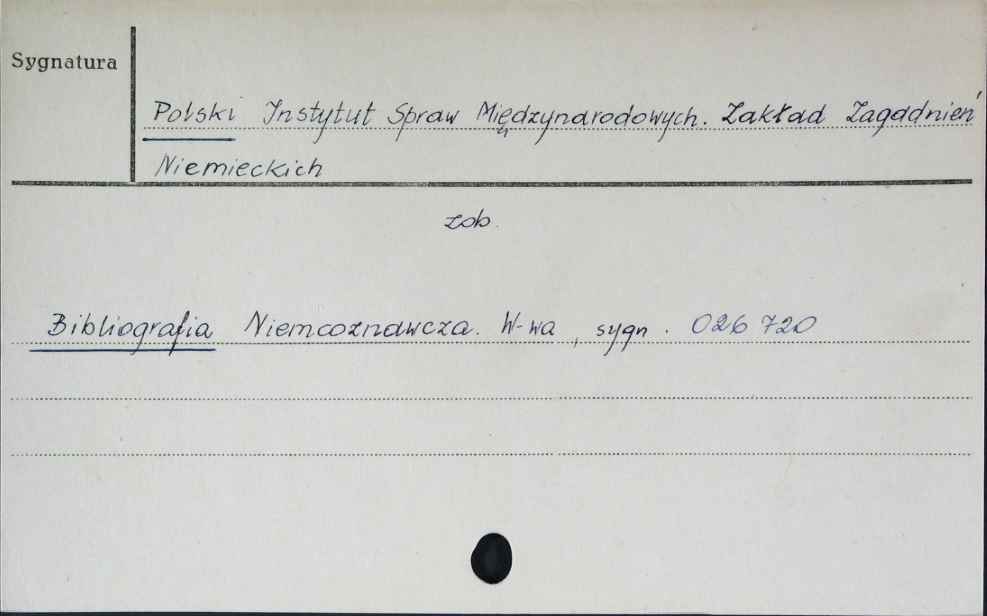 Sygnatura
Polski Instytut Spraw Międzynarodowych. Zakład Zagadnień
Niemieckich
zob.
Bibliografia Niemcoznawcza. W-wa, sygn. 026 720